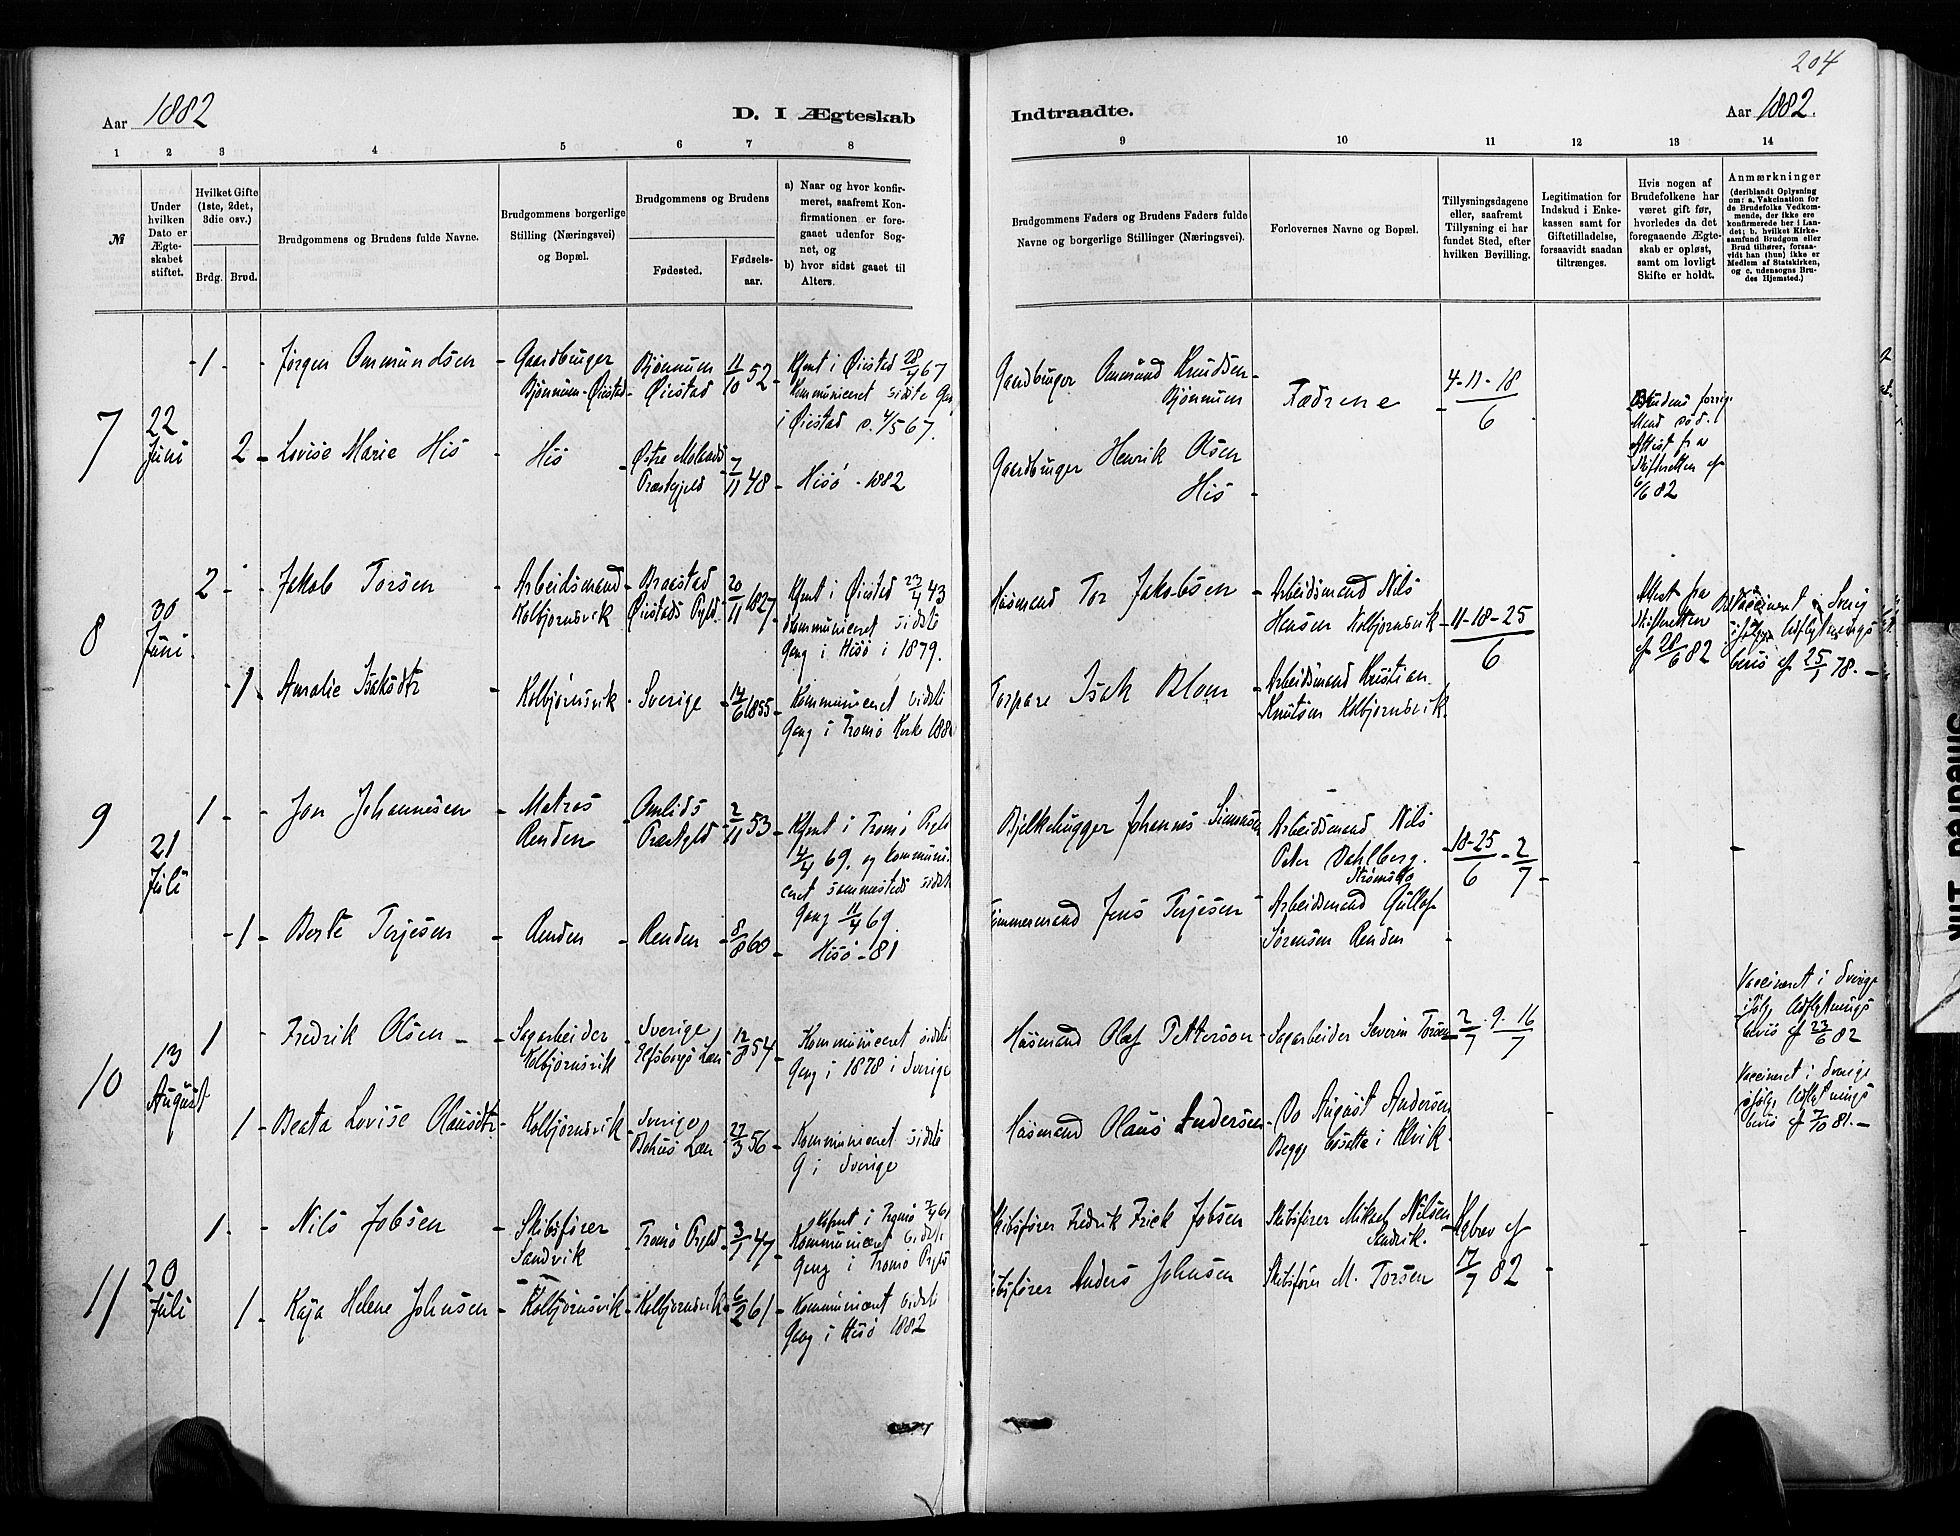 204
Aar 1882
D. I Ægteskab
Indtraadte.
Aar 1882.
1 2 3 4 5 6 7 8
9 10 11 12 13 14
№
Under hvilken Dato er Ægteskabet stiftet.
Hvilket Gifte (1ste, 2det, 3die osv.)
Brdg. Brud.
Brudgommens og Brudens fulde Navne.
Brudgommens borgerlige Stilling (Næringsvei) og Bopæl.
Brudgommens og Brudens
Fødested.
Fødselsaar.
a) Naar og hvor konfirmeret, saafremt Konfirmationen er foregaaet udenfor Sognet, og
b) hvor sidst gaaet til Alters.
Brudgommens Faders og Brudens Faders fulde Navne og borgerlige Stillinger (Næringsvei).
Forlovernes Navne og Bopæl.
Tillysningsdagene eller, saafremt Tillysning ei har fundet Sted, efter hvilken Bevilling.
Legitimation for Indskud i Enkekassen samt for Giftetilladelse, forsaavidt saadan tiltrænges.
Hvis nogen af Brudefolkene har været gift før, hvorledes da det foregaaende Ægteskab er opløst, samt om lovligt Skifte er holdt.
Anmærkninger
(deriblandt Oplysning om: a. Vakcination for de Brudefolks Vedkommende, der ikke ere konfirmerede her i Landet; b. hvilket Kirkesamfund Brudgom eller Brud tilhører, forsaavidt han (hun) ikke er Medlem af Statskirken, og c. udensogns Brudes Hjemsted.)
7
22 Juni
1 Jørgen Ommundsen
Gaardbruger Bjønnum - Øiestad
Bjønnum Øiestad
11/10 52
Kfmt i Øiestad 28/4 67
Kommuniceret sidste Gg
i Øiestad d. 4/5 67.
Gaardbruger Ommund Knudsen Bjønnum
Fædrene
4-11-18/6
Brudens forrige Mand død. Attest fra Skifteretten af 6/6 82
2 Lovise Marie His
His
Østre Molands Præstegjeld
7/11 48
Hisö - 1882
Gaardbruger Henrik Olsen His
8
30 Juni
2 Jakob Torsen
Arbeidsmand Kolbjørnsvik
Braastad Øiestads Prgld.
20/11 1827
Kfmt i Øiestad 23/4 43
Kommuniceret sidste
Gang i Hisö i 1879.
Husmand Tor Jakobsen
Arbeidsmand Nils Hansen Kolbjornsvik
11-18-25/6
Attest fra Skifteretten af 28/6 82
Vaccineret i Sverig ifølge Udflytnings bevis af 25/1 78.
1 Amalie Isaksdtr
Kolbjørnsvik
Sverige
14/6 1855
Kommuniceret sidste
Gang i Tromö Kirke 188
Torpare Isak Blom
Arbeidsmand Kristian Knutsen Kolbjornsvik
9
21 Juli
1 Jon Johannesen
Matros Renden
Omlids Præstgjld
2/11 53
Kfmt i Tromö Prgld
4/4 69. og kommuniceret sammesteds sidste
Gang 11/4 69.
Bjelkehugger Johannes Simonsen
Arbeidsmand Nils Peter Dahlberg. Strømsbo
18-25/6 - 2/7
1 Berte Terjesen
Renden
Renden
8/8 60
Hisö - 81
Tømmermand Jens Terjesen
Arbeidsmand Gullof Sørensen Renden
10
13 August
1 Fredrik Olsen
Sagarbeider Kolbjørnsvik
Sverige Elfsborgs Læn
12/8 54
Kommuniceret sidste
Gang i 1878 i Sverige
Husmand Olaf Pettersson
Sagarbeider Severin Torsen
2/7 - 9 - 16/7
Vaccineret i Sverige ifølge Udflytnings bevis af 23/6 82
1 Beata Lovise Olausdtr
Kolbjørnsvik
Sverige Bohus Læn
27/3 56
Kommuniceret sidste
G i Sverige
Husmand Olaus Andersen
Do August Andersen Begge bosatte i Kolvik
Vaccineret i Sverige ifølge Udflytnings bevis af 7/10 81.
11
20 Juli
1 Nils Jobsen
Skibsfører Sandvik
Tromö Prgld
3/1 47
Kfmt i Tromö
Kommuniceret sidste
Gang i Tromö Prgld
Skibsfører Fredrik Frick Jobsen
Skibsfører Mikael Nilsen Sandvik.
Kgbrev af 17/7 82
1 Kaja Helene Johnsen
Kolbjørnsvik
Kolbjornsvik
6/2 61
Kommuniceret sidste
Gang i Hisö 1882
Skibsfører Anders Johnsen
Skibsfører M. Torsen